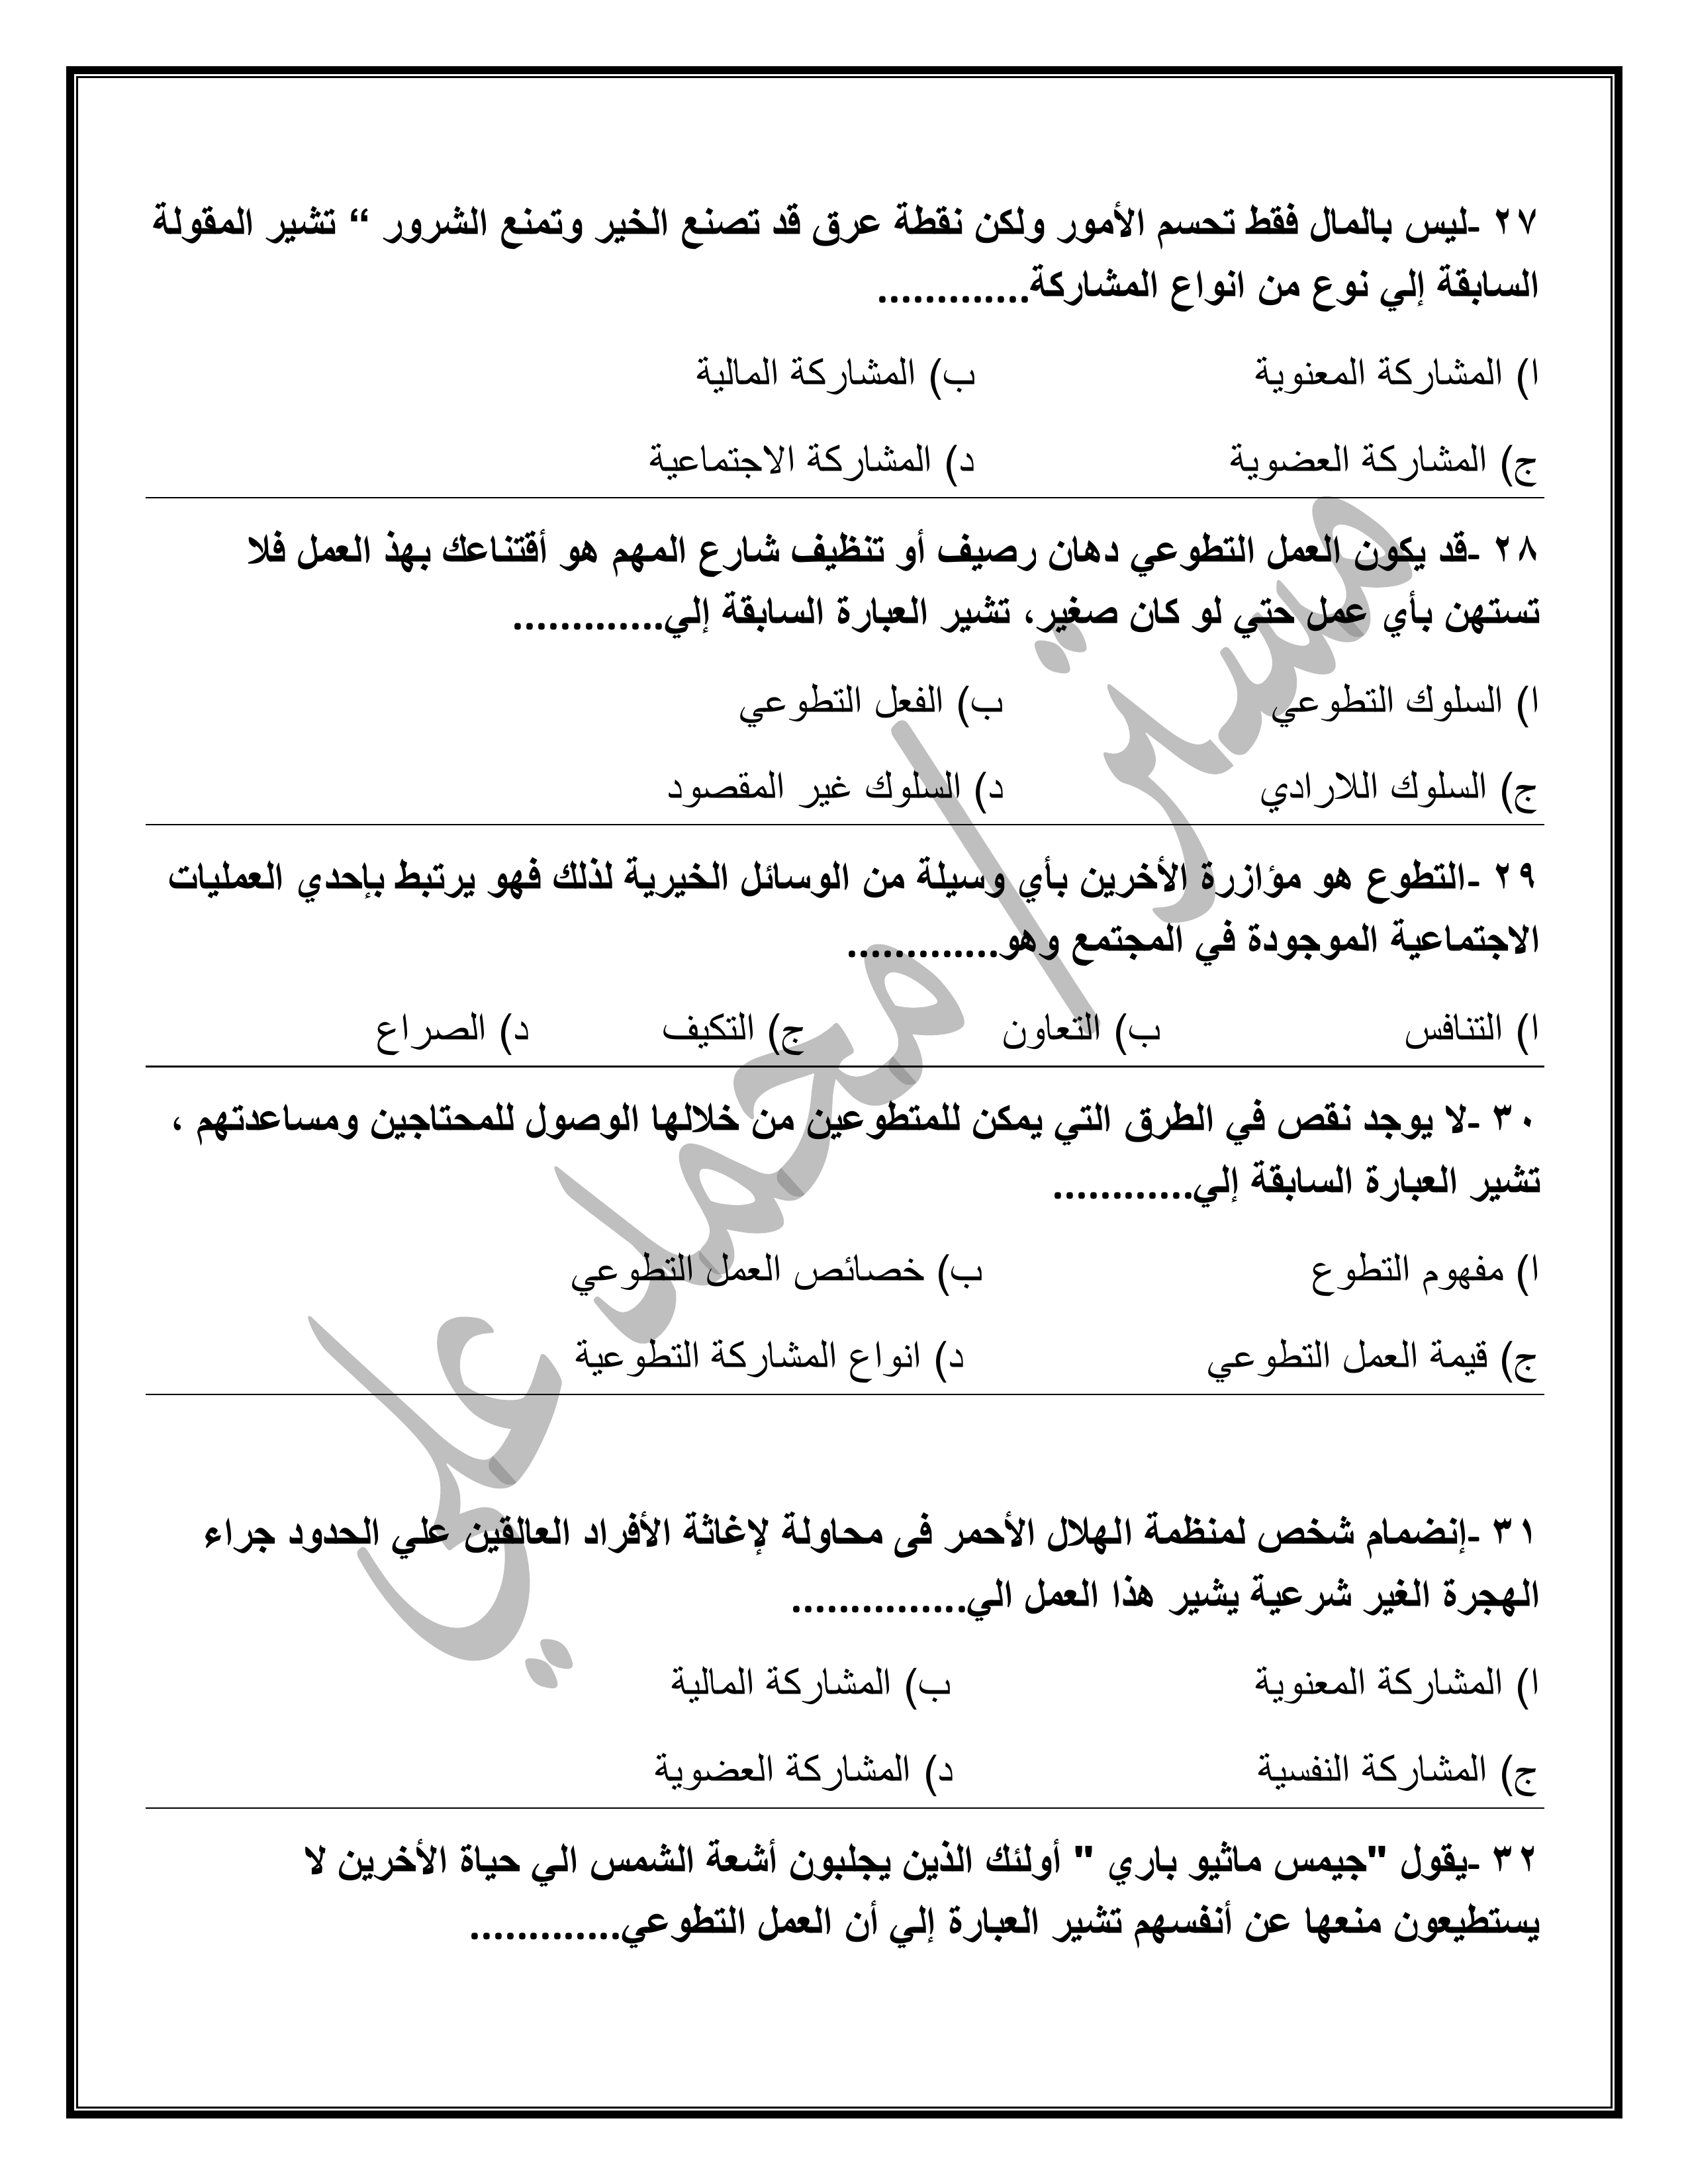 ٢٧ -ليس بالمال فقط تحسم الأمور ولكن نقطة عرق قد تصنع الخير وتمنع الشرور “ تشير المقولة
السابقة إلي نوع من انواع المشاركة.............
ا) المشاركة المعنوية ب) المشاركة المالية
ج) المشاركة العضوية د) المشاركة الاجتماعية
٢٨ -قد يكون العمل التطوعي دهان رصيف أو تنظيف شارع المهم هو أقتناعك بهذ العمل فلا
تستهن بأي عمل حتي لو كان صغير، تشير العبارة السابقة إلي.............
ا) السلوك التطوعي ب) الفعل التطوعي
ج) السلوك اللارادي د) السلوك غير المقصود
٢٩ -التطوع هو مؤازرة الأخرين بأي وسيلة من الوسائل الخيرية لذلك فهو يرتبط بإحدي العمليات
الاجتماعية الموجودة في المجتمع وهو.............
ا) التنافس ب) التعاون ج) التكيف د) الصراع
٣٠ -لا يوجد نقص في الطرق التي يمكن للمتطوعين من خلالها الوصول للمحتاجين ومساعدتهم ،
تشير العبارة السابقة إلي............
ا) مفهوم التطوع ب) خصائص العمل التطوعي
ج) قيمة العمل التطوعي د) انواع المشاركة التطوعية
٣١ -إنضمام شخص لمنظمة الهلال الأحمر فى محاولة لإغاثة الأفراد العالقين علي الحدود جراء
الهجرة الغير شرعية يشير هذا العمل الي...............
ا) المشاركة المعنوية ب) المشاركة المالية
ج) المشاركة النفسية د) المشاركة العضوية
٣٢ -يقول "جيمس ماثيو باري " أولئك الذين يجلبون أشعة الشمس الي حياة الأخرين لا
يستطيعون منعها عن أنفسهم تشير العبارة إلي أن العمل التطوعي.............
مستر/ محمد علي